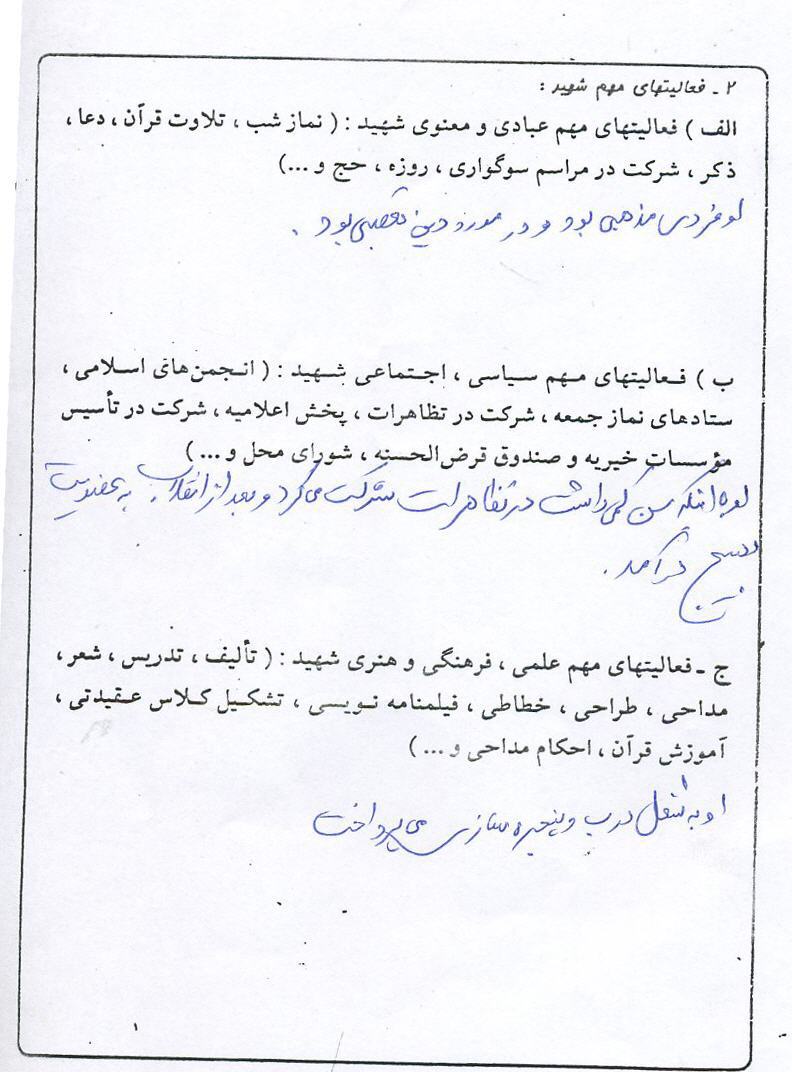 ۲ ـ فعالیتهای مهم شهید :
الف ) فعالیتهای مهم عبادی و معنوی شهید : ( نماز شب ، تلاوت قرآن ، دعا ،
ذکر ، شرکت در مراسم سوگواری ، روزه ، حج و ...)
او فردی مذهبی بود و در مورد دین تعصبی بود .
ب ) فعالیتهای مهم سیاسی ، اجتماعی شهید : ( انجمن‌های اسلامی ،
ستادهای نماز جمعه ، شرکت در تظاهرات ، پخش اعلامیه ، شرکت در تأسیس
مؤسسات خیریه و صندوق قرض‌الحسنه ، شورای محل و ... )
اینکه سن کمی داشت در تظاهرات شرکت می‌کرد و بعد از انقلاب به عضویت
بسیج در آمد .
ج ـ فعالیتهای مهم علمی ، فرهنگی و هنری شهید : ( تألیف ، تدریس ، شعر ،
مداحی ، طراحی ، خطاطی ، فیلمنامه نویسی ، تشکیل کلاس عقیدتی ،
آموزش قرآن ، احکام مداحی و ... )
او به شغل درب و پنجره سازی می پرداخت